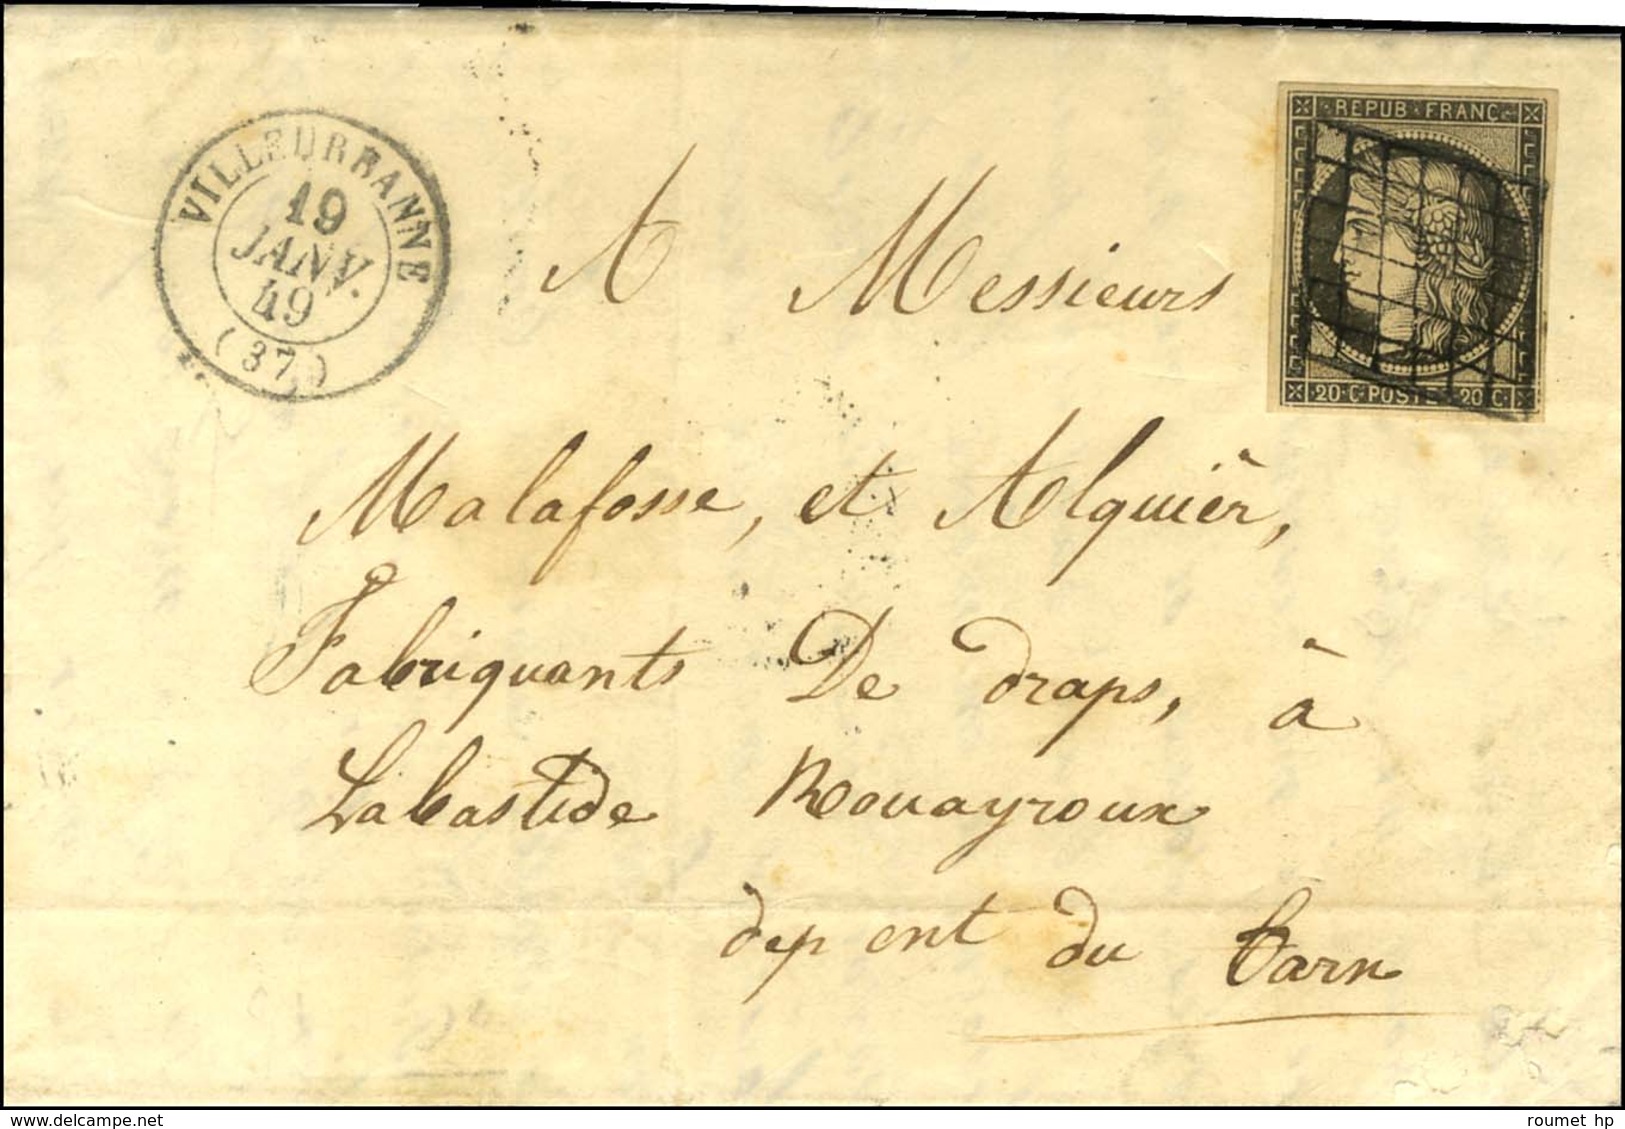 VILLEURBANNE
19
JANV.
49
(37)
REPUB·FRANC·
20·C·POSTE·20·C·
A Messieurs
Malafosse, et Alquièr,
Fabriquants De draps, à
Labastide Rouayroux
depent du tarn
www.delcampe.net
roumet hp